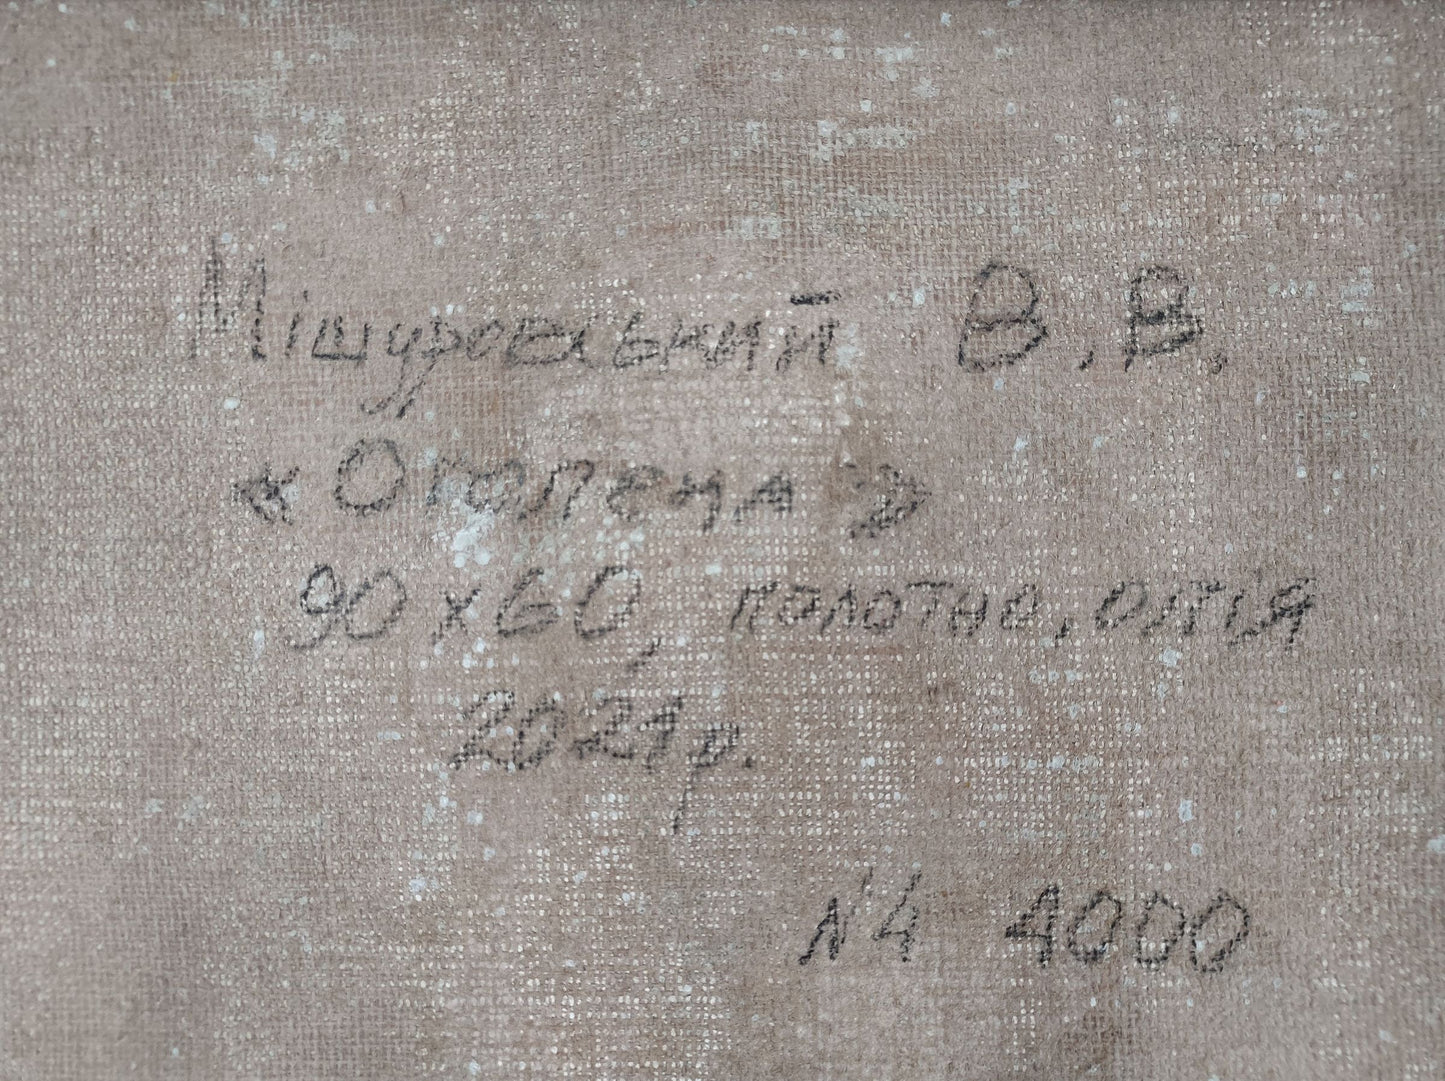 Мішуровський В.В.
«Оголена»
90х60, полотно, олія
2021р.
N4 1000